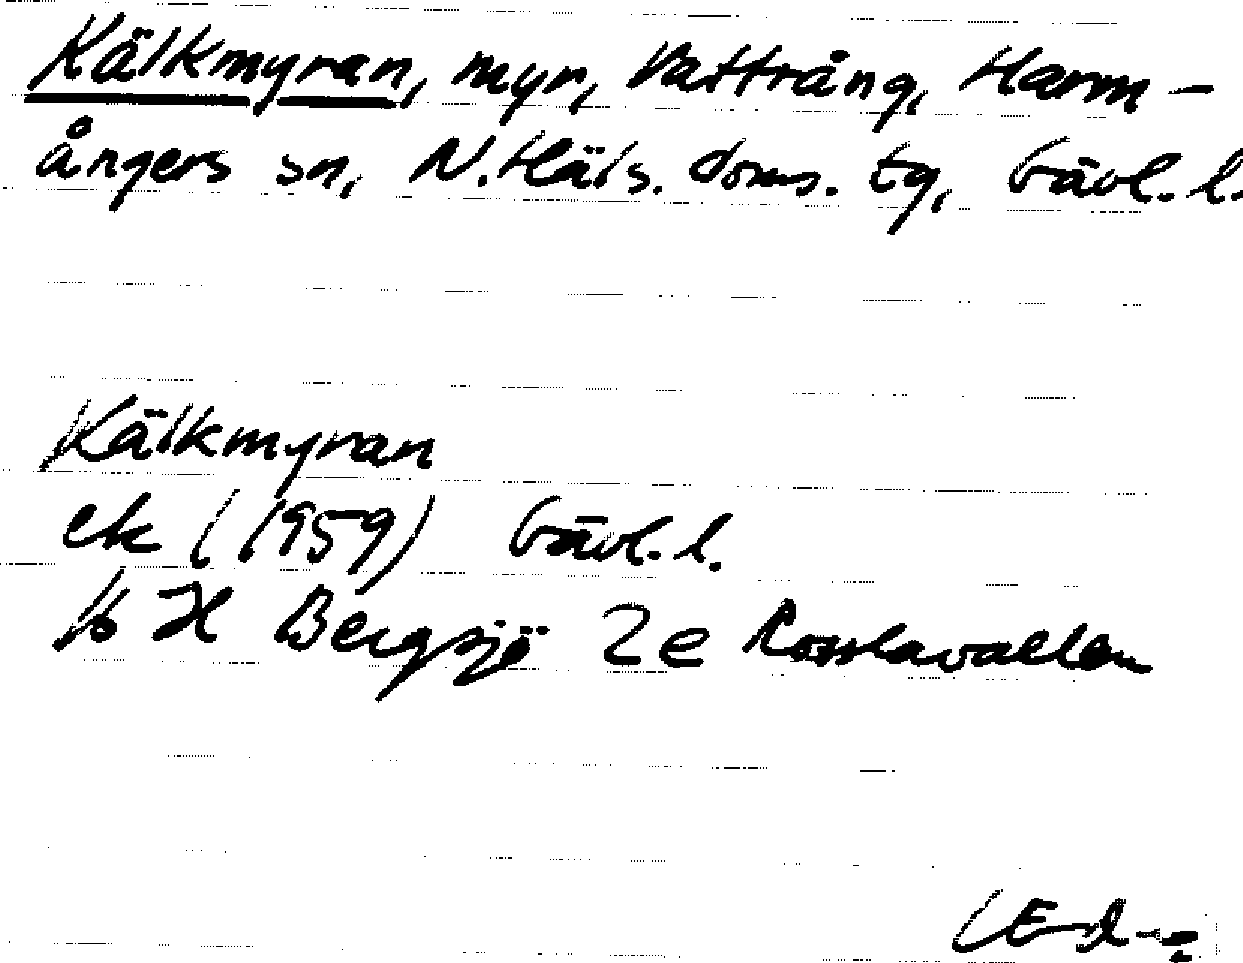 Kälkmyran, myr, Vattrång, Harm-
ångers sn, N. Häls. doms. tg, Gävl. l.
Kälkmyran
ek (1959) Gävl. l.
16 H Bergsjö 2e Rosslavallen